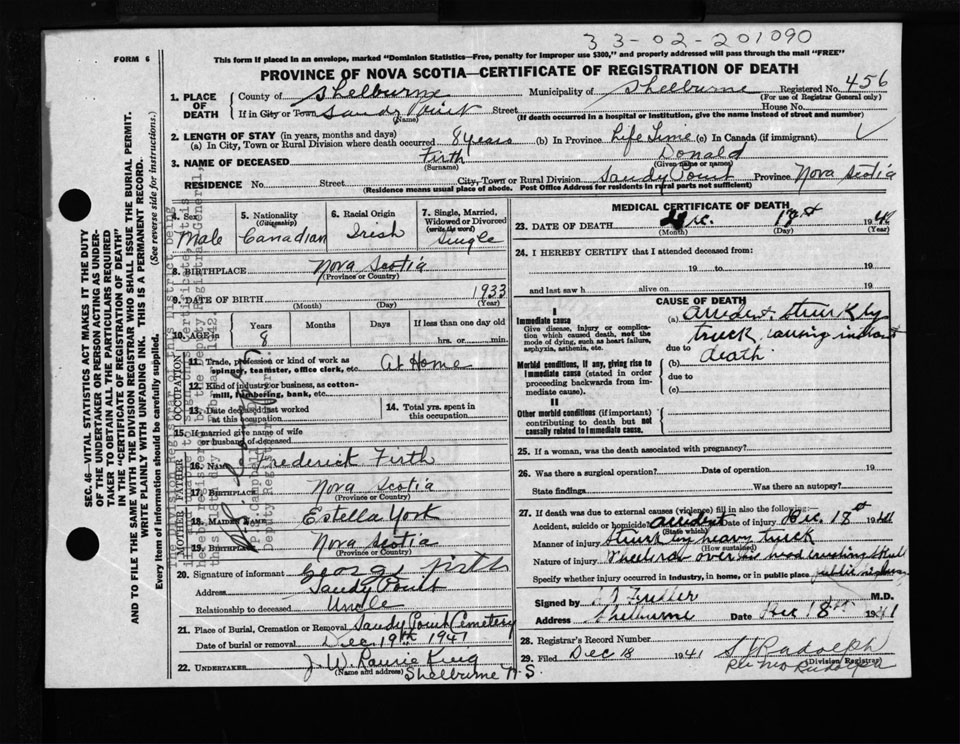 33-02-201090
FORM 6
This form if placed in an envelope, marked "Dominion Statistics—Free, penalty for improper use $300," and properly addressed will pass through the mail "FREE"
PROVINCE OF NOVA SCOTIA—CERTIFICATE OF REGISTRATION OF DEATH
Registered No. 456
(For use of Registrar General only)
1. PLACE OF DEATH
County of Shelburne Municipality of Shelburne
If in City or Town Sandy Point Street House No.
(Name) (If death occurred in a hospital or institution, give the name instead of street and number)
2. LENGTH OF STAY (in years, months and days)
(a) In City, Town or Rural Division where death occurred 8 years (b) In Province Life Time (c) In Canada (if immigrant)
3. NAME OF DECEASED Firth Donald
(Surname) (Given name or names)
RESIDENCE No. Street City, Town or Rural Division Sandy Point Province Nova Scotia
(Residence means usual place of abode. Post Office Address for residents in rural parts not sufficient)
4. Sex Male
5. Nationality (Citizenship) Canadian
6. Racial Origin Irish
7. Single, Married, Widowed or Divorced (write the word) Single
8. BIRTHPLACE Nova Scotia
(Province or Country)
9. DATE OF BIRTH 1933
(Month) (Day) (Year)
10. AGE in Years Months Days If less than one day old
8 hrs. or min.
OCCUPATION
11. Trade, profession or kind of work as spinner, teamster, office clerk, etc. At Home
12. Kind of industry or business, as cotton-mill, lumbering, bank, etc.
13. Date deceased last worked at this occupation
14. Total yrs. spent in this occupation
15. If married give name of wife or husband of deceased
FATHER
16. Name Frederick Firth
17. Birthplace Nova Scotia
(Province or Country)
MOTHER
18. Maiden Name Estella York
19. Birthplace Nova Scotia
(Province or Country)
20. Signature of informant George Firth
Address Sandy Point
Relationship to deceased Uncle
21. Place of Burial, Cremation or Removal Sandy Point Cemetery
Date of burial or removal Dec 19th 1941
22. UNDERTAKER J. W. King
(Name and address) Shelburne N.S.
MEDICAL CERTIFICATE OF DEATH
23. DATE OF DEATH Dec. 1941
(Month) (Day) (Year)
24. I HEREBY CERTIFY that I attended deceased from:
19 to 19
and last saw h alive on 19
CAUSE OF DEATH
I
Immediate cause
Give disease, injury or complication which caused death, not the mode of dying, such as heart failure, asphyxia, asthenia, etc.
(a) accident, struck by
truck, causing instant
due to death
Morbid conditions, if any, giving rise to immediate cause (stated in order proceeding backwards from immediate cause).
(b)
due to
(c)
II
Other morbid conditions (if important) contributing to death but not causally related to immediate cause.
25. If a woman, was the death associated with pregnancy?
26. Was there a surgical operation? Date of operation 19
State findings Was there an autopsy?
27. If death was due to external causes (violence) fill in also the following:
Accident, suicide or homicide? accident Date of injury Dec. 18th 1941
(State which)
Manner of injury Struck by heavy truck
(How sustained)
Nature of injury Wheel over his head crushing skull
Specify whether injury occurred in industry, in home, or in public place public highway
Signed by M.D.
Address Shelburne Date Dec 18th 1941
28. Registrar's Record Number
29. Filed Dec 18 1941
(Division Registrar)
SEC. 46—VITAL STATISTICS ACT MAKES IT THE DUTY
OF THE UNDERTAKER OR PERSON ACTING AS UNDER-
TAKER TO OBTAIN ALL THE PARTICULARS REQUIRED
IN THE "CERTIFICATE OF REGISTRATION OF DEATH"
AND TO FILE THE SAME WITH THE DIVISION REGISTRAR WHO SHALL ISSUE THE BURIAL PERMIT.
WRITE PLAINLY WITH UNFADING INK. THIS IS A PERMANENT RECORD.
Every item of information should be carefully supplied. (See reverse side for instructions.)